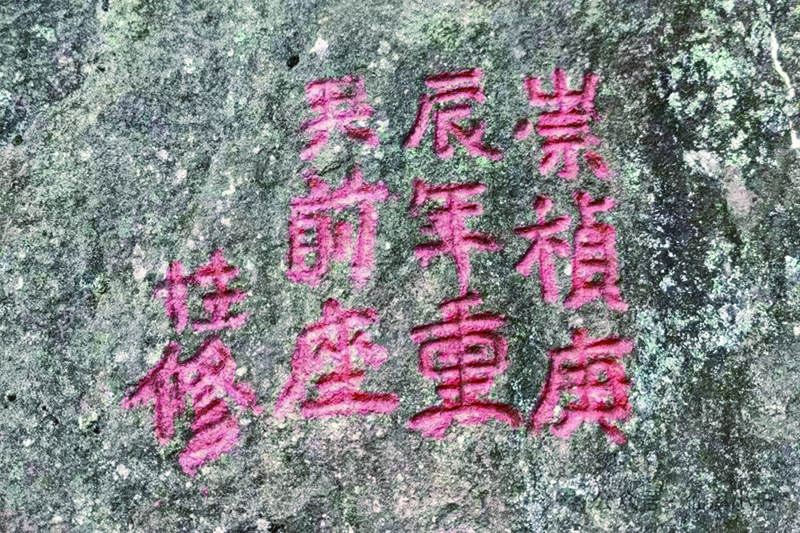 崇禎庚
辰年重
前座
桂修